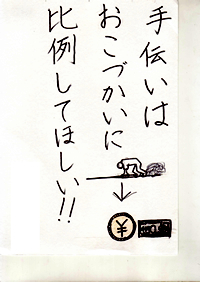 手伝いは
おこづかいに
比例してほしい!!
¥